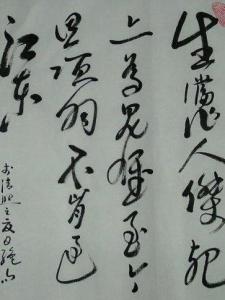 生當作人傑死
亦為鬼雄至今
思項羽不肯過
江東
李清照之夏日絕句